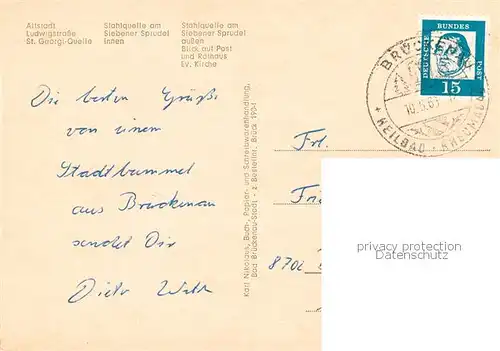 Altstadt
Ludwigstraße
St. Georgi-Quelle
Stahlquelle am
Siebener Sprudel
innen
Stahlquelle am
Siebener Sprudel
außen
Blick auf Post
und Rathaus
Ev. Kirche
Die besten Grüße
von einem
Stadtbummel
aus Brückenau
sendet Dir
Dieter
Karl Nikolaus, Buch-, Papier- und Schreibwarenhandlung,
Bad Brückenau-Stadt - z. Bestellnr. Brück 1904
DEUTSCHE
BUNDES
POST
15
HEILBAD
Frl.
8702
privacy protection
AnsichtskartenVersand.com